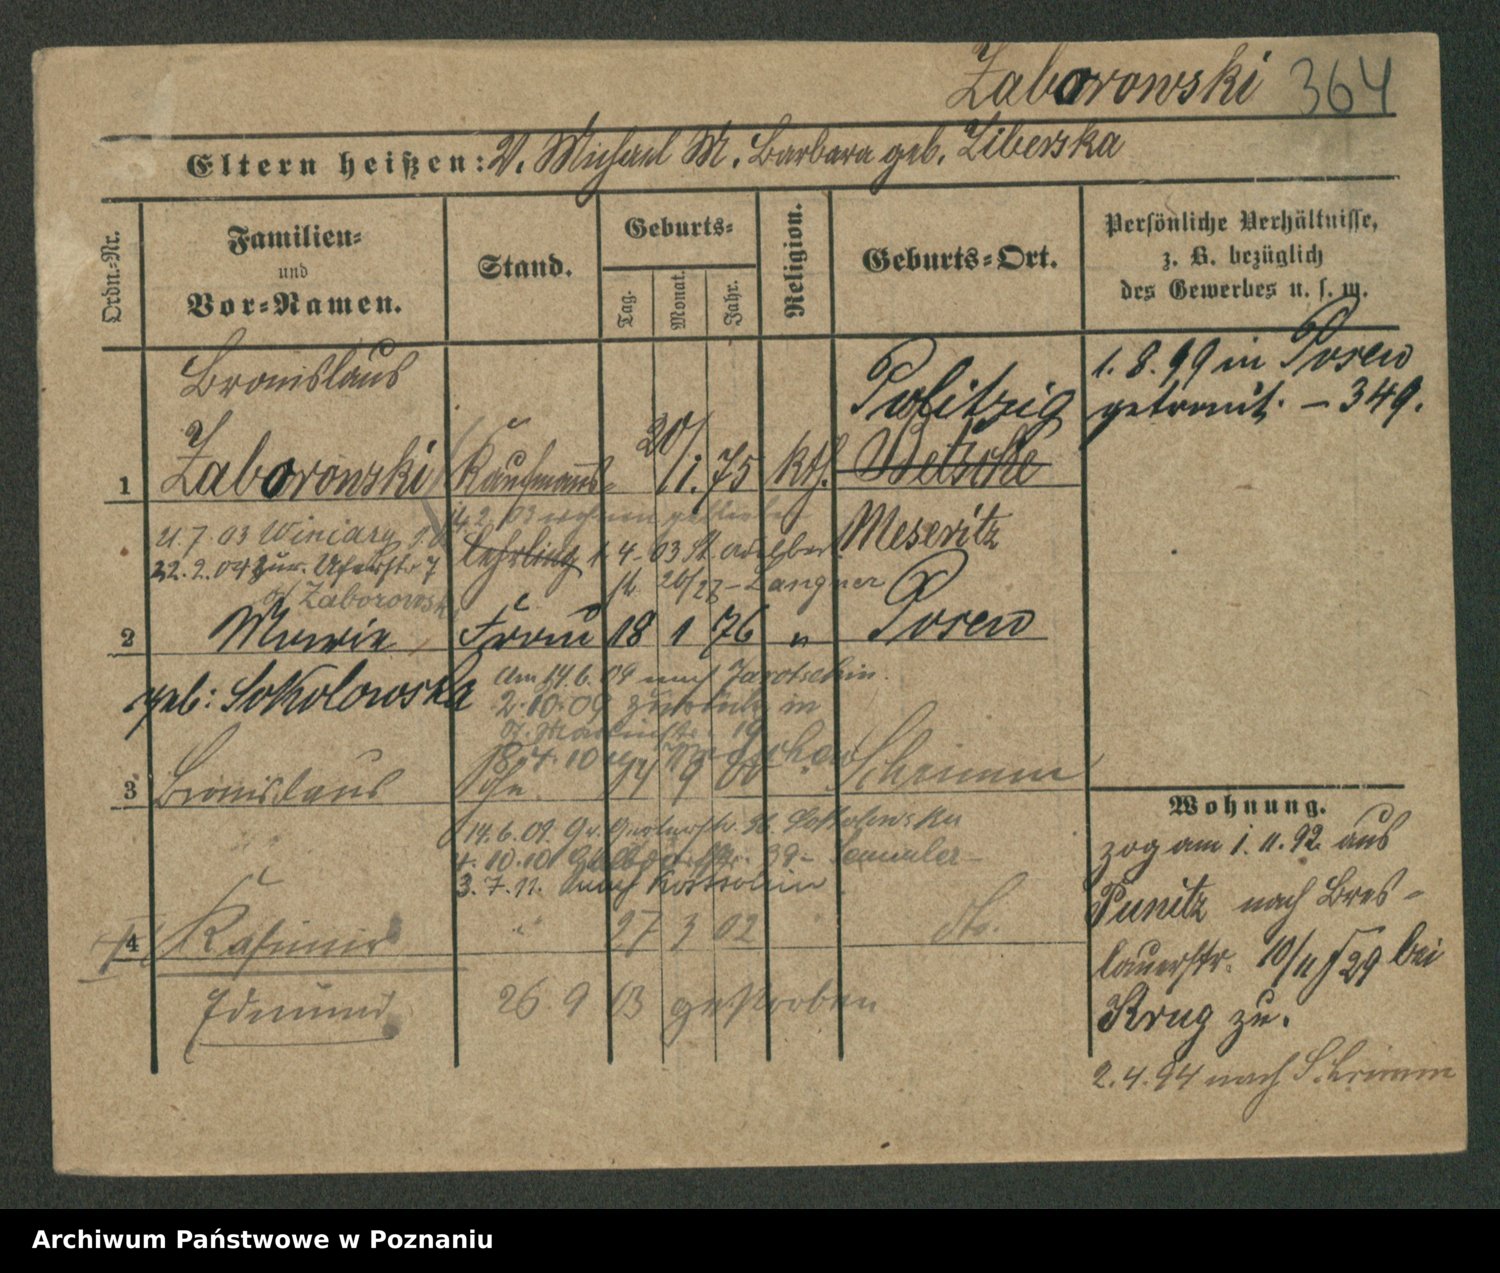 Zaborowski 364
Eltern heißen: V. Michael M. Barbara geb. Ziberska
Ordn.-Nr.
Familien-
und
Vor-Namen.
Stand.
Geburts-
Tag.
Monat.
Jahr.
Religion.
Geburts-Ort.
Persönliche Verhältnisse,
z. B. bezüglich
des Gewerbes u. s. w.
Bronislaus
1 Zaborowski Kaufmanns- 20/ 1. 75 kth. Politzig
Betsche
Meseritz
1. 8. 99 in Posen
getraut. — 349.
21. 7. 03 Winiary
Lehrling 1. 4. 03 St. Adalbert
22. 2. 04 zur. Uferstr. 7
26/27 - Langner
Zaborowski
2 Marie Frau 18 1 76 " Posen
geb: Sokolowska
Am 14. 6. 09 nach Jarotschin.
2. 10. 09 zurück in
St. Martinstr. 19
3 Bronislaus Sohn 14 9 00 Schrimm
14. 6. 09 Gr. Gerberstr. 36. Sokolowska
4. 10. 10 39 -
3. 7. 11. nach Koschmin
4 Kasimir " 27 3 02 " do.
Edmund 26. 9 03 gestorben
Wohnung.
zog am 1. 11. 92. aus
Punitz nach Bres-
lauerstr. 10/11 J 29 bei
Krug zu.
2. 4. 94 nach Schrimm
Archiwum Państwowe w Poznaniu